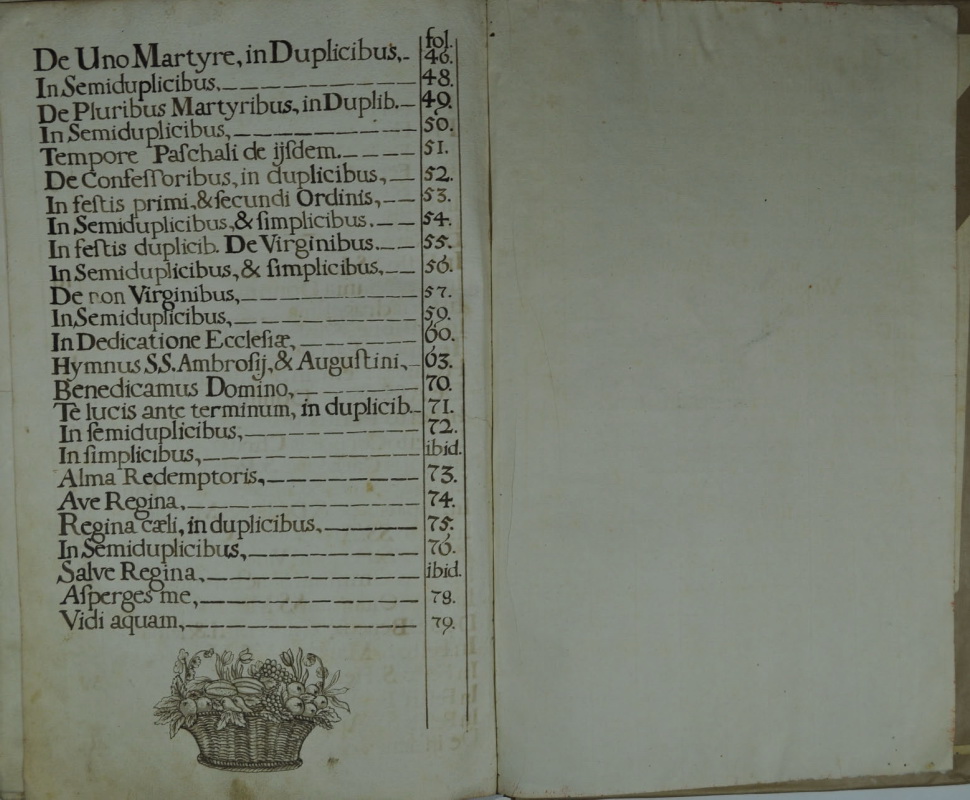 fol.
De Uno Martyre, in Duplicibus, 46.
In Semiduplicibus. 48.
De Pluribus Martyribus, in Duplib. 49.
In Semiduplicibus, 50.
Tempore Paſchali de ijſdem. 51.
De Confeſſoribus, in duplicibus, 52.
In feſtis primi, & ſecundi Ordinis, 53.
In Semiduplicibus, & ſimplicibus. 54.
In feſtis duplicib. De Virginibus. 55.
In Semiduplicibus, & ſimplicibus, 56.
De non Virginibus, 57.
In Semiduplicibus, 59.
In Dedicatione Eccleſiæ, 60.
Hymnus S.S. Ambroſij, & Auguſtini, 63.
Benedicamus Domino, 70.
Te lucis ante terminum, in duplicib. 71.
In ſemiduplicibus, 72.
In ſimplicibus, ibid.
Alma Redemptoris, 73.
Ave Regina, 74.
Regina cæli, in duplicibus, 75.
In Semiduplicibus, 76.
Salve Regina, ibid.
Aſperges me, 78.
Vidi aquam, 79.